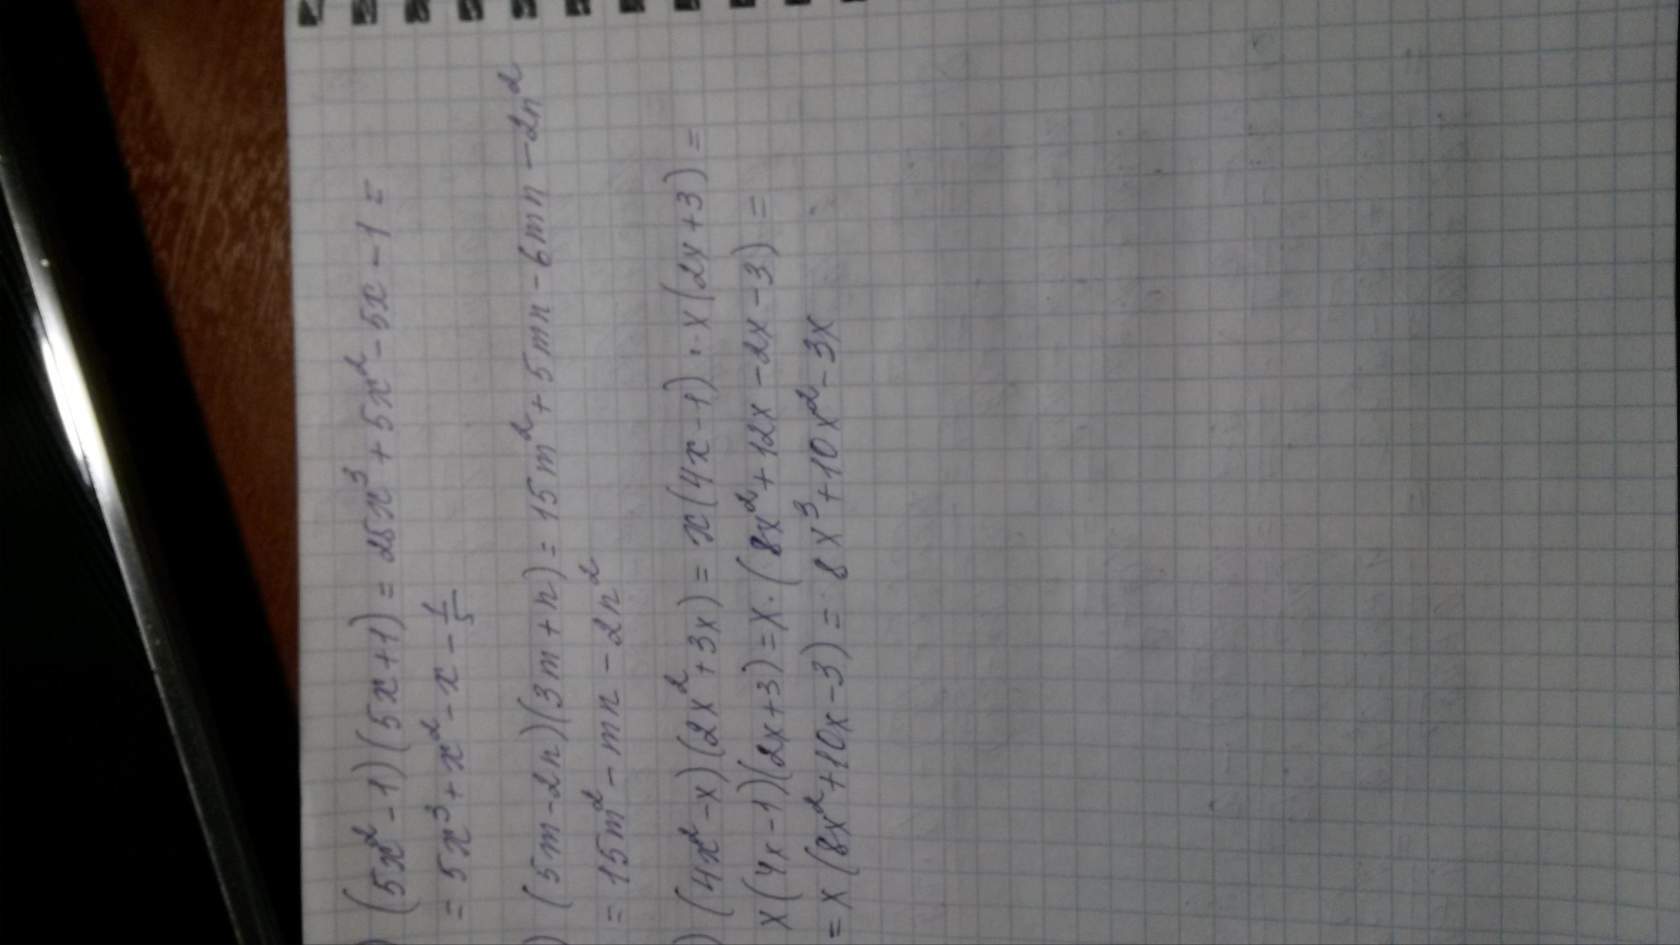 ) (5x² - 1)(5x + 1) = 25x³ + 5x² - 5x - 1 =
= 5x³ + x² - x - 1/5
) (5m - 2n)(3m + n) = 15m² + 5mn - 6mn - 2n²
= 15m² - mn - 2n²
) (4x² - x)(2x² + 3x) = x(4x - 1) · x(2x + 3) =
x(4x - 1)(2x + 3) = x · (8x² + 12x - 2x - 3) =
= x(8x² + 10x - 3) = 8x³ + 10x² - 3x